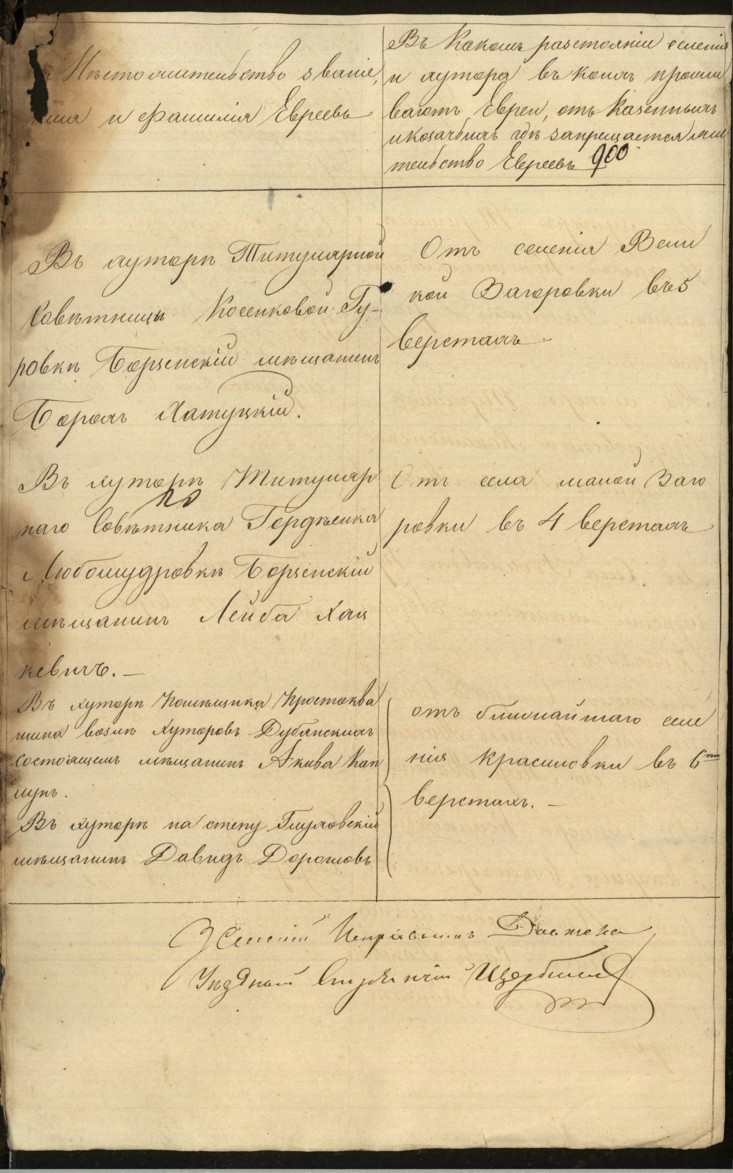 Мѣстожительство званіе,
имя и фамилія Евреевъ
Въ какомъ разстояніи селенія
и хутора въ коихъ прожи
ваютъ Евреи, отъ Казенныхъ
и козачьихъ гдѣ запрещается жи
тельство Евреевъ
Въ хуторѣ Титулярной
Совѣтницы Косенковой Гу-
ровкѣ Борзенскій мѣщанинъ
Борохъ Хатуцкій.
Отъ селенія Вели
кой Загоровки въ 5
верстахъ
Въ хуторѣ Титуляр
наго Совѣтника Гордѣенка
Любомудровкѣ Борзенскій
мѣщанинъ Лейба Хац
кевичъ. —
Отъ села малой Заго
ровки въ 4 верстахъ
Въ хуторѣ Помѣщика Простоква
шина возлѣ Хуторовъ Дубянскихъ
состоящемъ мѣщанинъ Акива Кап
лунъ.
Въ хуторѣ на степу Глуховскій
мѣщанинъ Давидъ Дороховъ
отъ ближайшаго селе
нія красиловки въ 6ти
верстахъ. —
Земскій Исправникъ
Уѣздный Стряпчій